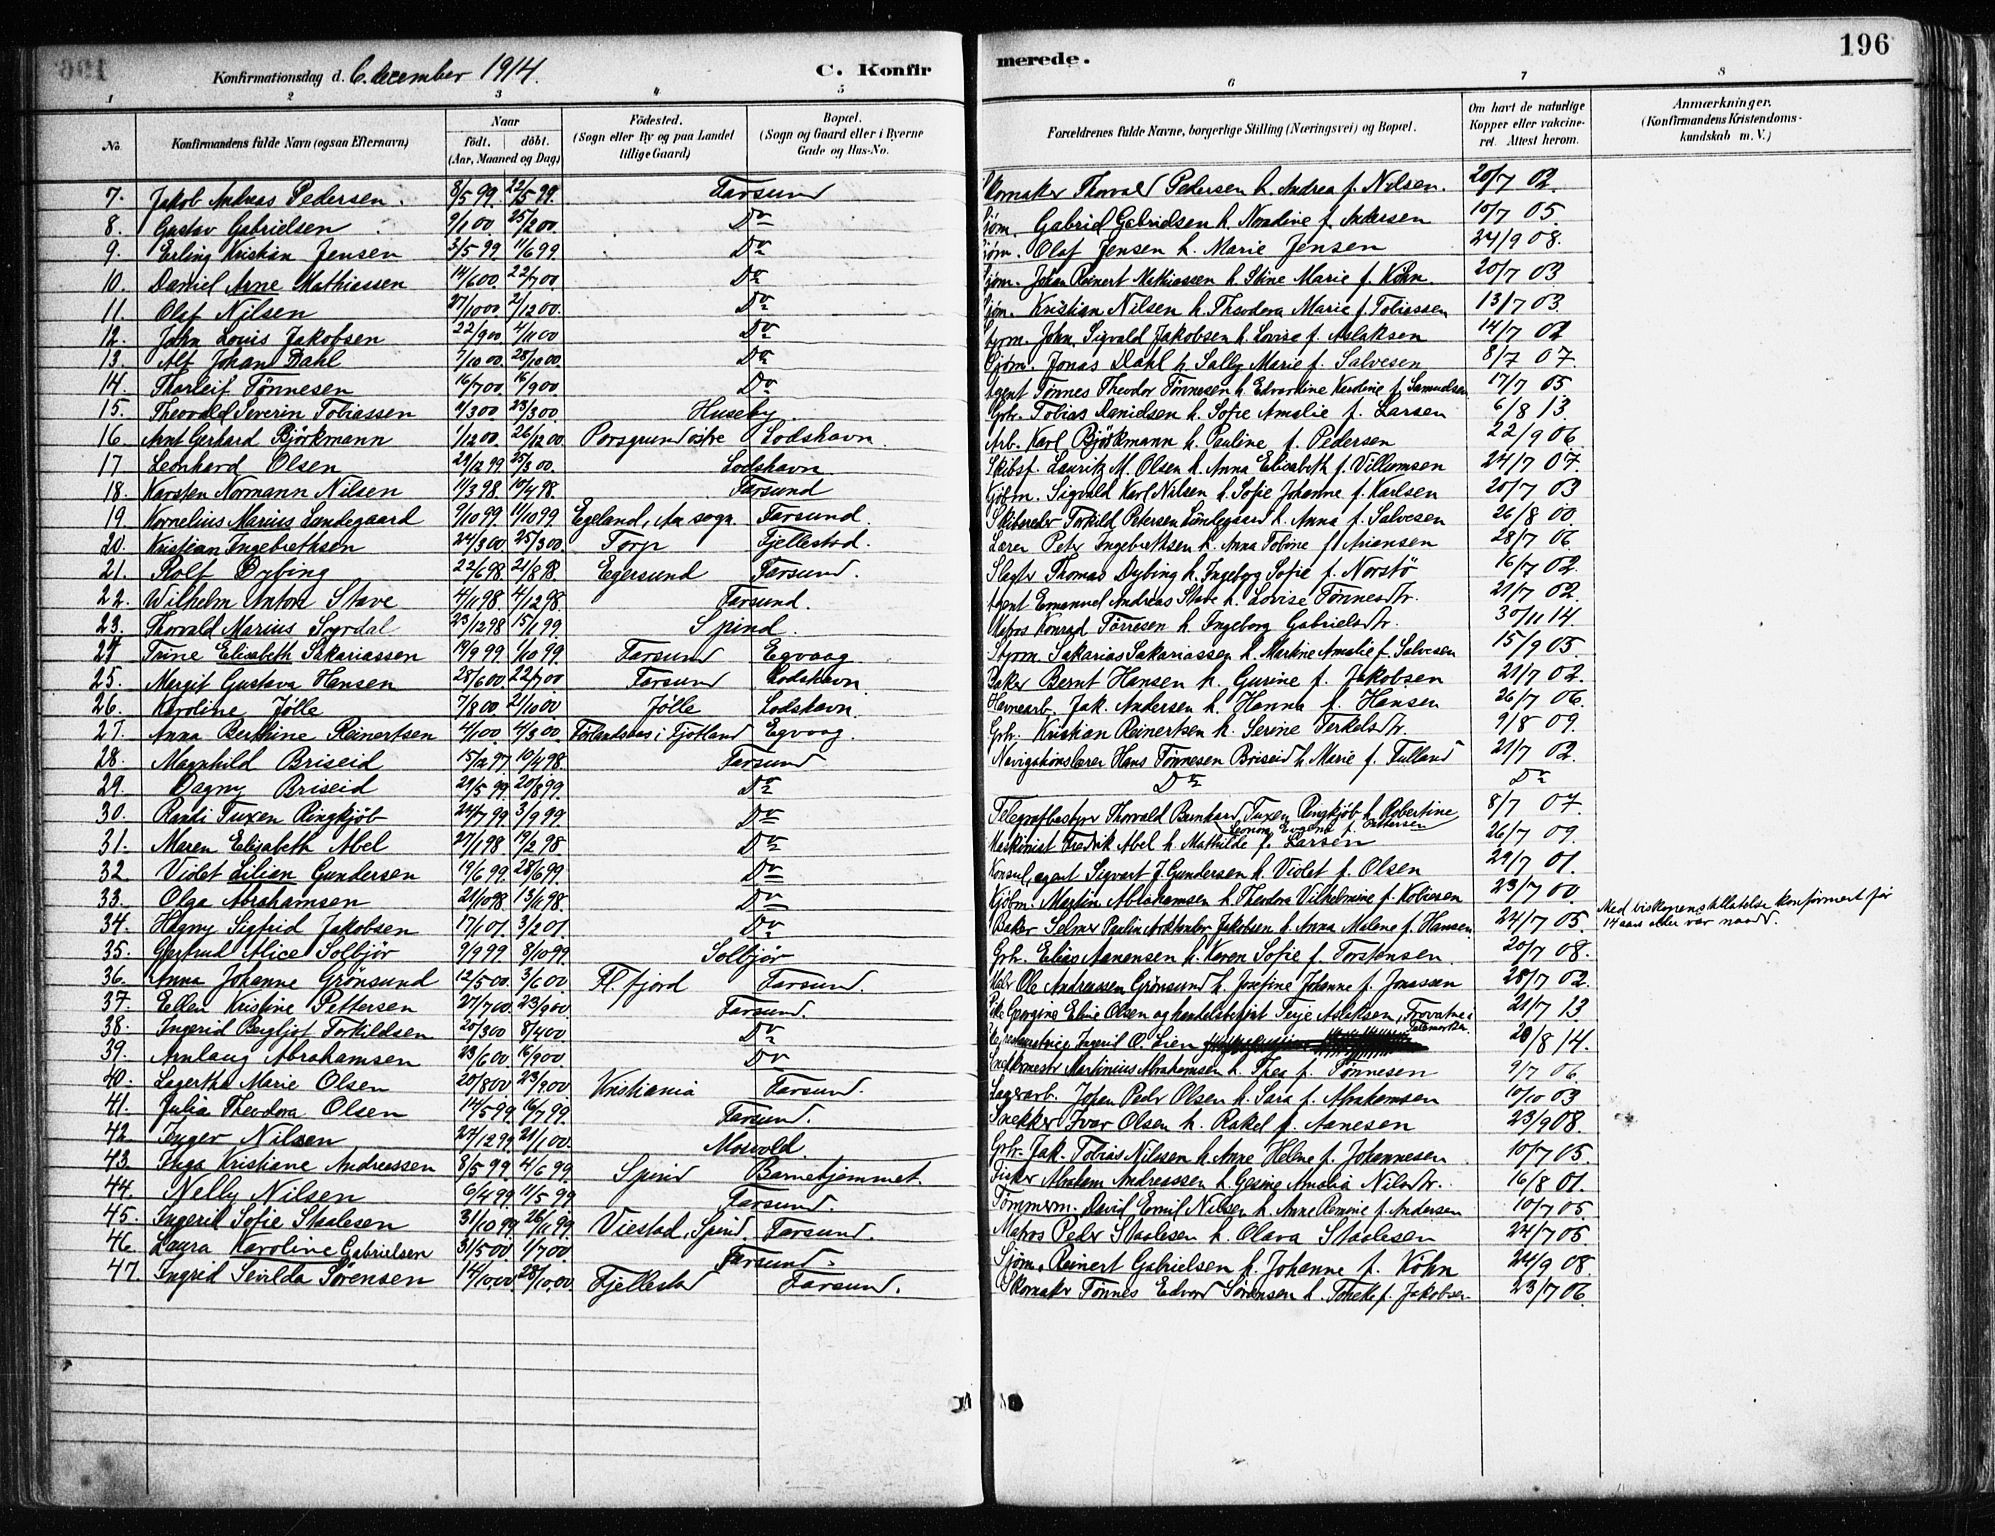 196
Konfirmationsdag d. 6. december 1914. C. Konfirmerede.
1 2 3 4 5 6 7 8
No. Konfirmandens fulde Navn (ogsaa Efternavn) Naar födt. döbt. (Aar, Maaned og Dag) Födested. (Sogn eller By og paa Landet tillige Gaard) Bopæl. (Sogn og Gaard eller i Byerne Gade og Hus-No. Forældrenes fulde Navne, borgerlige Stilling (Næringsvei) og Bopæl. Om havt de naturlige Kopper eller vakcineret. Attest herom. Anmærkninger. (Konfirmandens Kristendomskundskab m. V.)
7. Jakob Andreas Pedersen. 8/5 99 22/5 99. Farsund Skomaker Thorvald Pedersen h. Andrea f. Nilsen. 20/7 02.
8. Gustav Gabrielsen 9/1 00 25/2 00. Do Sjøm. Gabriel Gabrielsen h. Nordine f. Andersen 10/7 05
9. Erling Kristian Jensen 3/5 99 11/6 99 Do Sjøm. Olaf Jensen h. Marie Jensen 24/9 08.
10. Daniel Arne Mathiassen 14/6 00. 22/7 00 Do Sjøm. Johan Reinert Mathiassen h. Stine Marie f. Köhn. 20/7 03
11. Olaf Nilsen 27/10 00 2/12 00. Do Sjøm. Kristian Nilsen h. Theodora Marie f. Tobiassen 13/7 03.
12. John Louis Jakobsen 22/9 00 4/11 00 Do Styrm. John Sigvald Jakobsen h. Lovise f. Aslaksen 14/7 02
13. Alf Johan Dahl 7/10 00. 28/10 00. Do Sjøm. Jonas Dahl h. Sally Marie f. Salvesen 8/7 07.
14. Tharleif Tönnesen 16/7 00. 16/9 00. Do Agent Tönnes Theodor Tönnesen h. Edvardine Kerdine f. Samuelsen 17/7 05
15. Theovald Severin Tobiassen 9/3 00 23/3 00. Huseby. Grh. Tobias Danielsen h. Sofie Amalie f. Larsen 6/8 13.
16. Arnt Gerhard Björkmann 1/12 00. 26/12 00. Porsgrund östre Lodshavn. Arb. Karl Björkmann h. Pauline f. Pedersen 22/9 06.
17 Leonhard Olsen 29/12 99 25/3 00. Lodshavn. Skibsf. Lauritz M. Olsen h. Anna Elisabeth f. Villumsen 24/7 07.
18. Karsten Normann Nilsen 11/3 98. 10/4 98. Farsund Kjøbm. Sigvald Karl Nilsen h. Sofie Johanne f. Karlsen 20/7 03
19. Kornelius Marius Lundegaard 9/10 99. 11/10 99. Egeland, Aa sogn. Farsund. Skibsreder Torkild Petersen Lundegaard h. Anna f. Salvesen 26/8 00.
20. Kristian Ingebrethsen 24/3 00. 25/3 00. Torp Fjellestad. Lærer Peter Ingebrethsen h. Anna Tobine f. Ariansen 28/7 06
21. Rolf Dybing 22/6 98. 21/8 98. Egersund Farsund. Slagtr Thomas Dybing h. Ingeborg Sofie f. Norstö 16/7 02.
22. Wilhelm Anton Stave 4/11 98. 4/12 98. Farsund. Agent Emanuel Andreas Stave h. Lovise Tönnesdtr. 21/7 02.
23. Thorvald Marius Soyrdal 23/12 98 15/1 99. Spind. Matros Konrad Törresen h. Ingeborg Gabrielsdtr. 30/11 14.
24 Trine Elisabeth Sakariassen 19/9 99 1/10 99. Farsund Eqvaag Styrm. Sakarias Sakariassen h. Martine Amalie f. Salvesen 15/9 05.
25. Margit Gustava Hansen 28/6 00. 22/7 00 Farsund Lodshavn Baker Bernt Hansen h. Gurine f. Jakobsen 21/7 02.
26. Karoline Jölle 7/8 00. 21/10 00 Jölle Lodshavn. Havnearb. Jak. Andersen h. Hanna f. Hansen 26/7 06.
27. Anna Berthine Reinertsen 4/1 00. 4/3 00. i Fjotland Eqvaag. Grh. Kristian Reinertsen h. Serine Terkelsdtr. 9/8 09.
28. Magnhild Briseid 15/12 97 10/4 98. Farsund Navigationslærer Hans Tönnesen Briseid h. Marie f. Fulland 21/7 02.
29. Dagny Briseid 21/5 99. 20/8 99. Do Do Do
30. Randi Tuxen Ringkjöb 24/7 99 3/9 99. Do Telegrafbestyr Thorvald Burnhard Tuxen Ringkjöb h. Robertine Leonora Eugenie f. Pettersen 8/7 07.
31. Maren Elisabeth Abel 27/1 98 19/2 98 Do Maskinist Fredrik Abel h. Mathilde f. Larsen 26/7 09.
32. Violet Lilian Gundersen 19/6 99. 28/6 99. Do Konsul, agent Sigvart J. Gundersen h. Violet f. Olsen 29/7 01.
33. Olga Abrahamsen 21/10 98. 13/11 98. Do Kjöbm. Martin Abrahamsen h. Theodora Vilhelmine f. Kobiersen 23/7 00.
34. Hagny Sigfrid Jakobsen 17/1 01. 3/2 01. Do Baker Selmer Paulin Jakobsen h. Anna Malene f. Hansen. 24/7 05. Med biskopens tilladelse konfirmert før 14 aars alder var naadd.
35. Gertrud Alice Solbjör 9/9 99 8/10 99. Solbjör Grh. Elias Aanensen h. Karen Sofie f. Torstensen. 20/7 08.
36. Anna Johanne Grönsund 12/5 00. 3/6 00. Fl. fjord Farsund. Ole Andreassen Grönsund h. Josefine Johanne f. Jonassen 28/7 02.
37. Ellen Kristine Pettersen 27/7 00. 23/9 00. Farsund. Pike Georgine Elise Olsen og handelsbetjent Terje Aslaksen, Trovatne i Telemarken. 21/7 13
38. Ingerid Bergljot Torkildsen 20/3 00 8/4 00. Do Ingerid O. Lien 20/8 14.
39. Arnlaug Abrahamsen 23/6 00. 16/9 00. Do Snekkermestr Martinius Abrahamsen h. Thea f. Tönnesen 9/7 06.
40. Lagertha Marie Olsen 20/8 00 23/9 00 Kristiania Farsund. Lagerarb. Johan Pedr Olsen h. Sara f. Abrahamsen 10/10 03
41. Julia Theodora Olsen 14/5 99. 16/7 99. Farsund. Snekker Ivar Olsen h. Rakel f. Aanesen 23/9 08.
42. Inger Nilsen 27/12 99. 21/1 00. Mosvold Grh. Jak. Tobias Nilssen h. Anne Helene f. Johannesen 10/7 05.
43. Inga Kristiane Andreassen 8/5 99. 4/6 99. Spind Barnehjemmet. Fisker Abraham Andreassen h. Gesine Amalia Nilsdtr. 16/8 01.
44. Nelly Nilsen 6/4 99. 11/5 99 Farsund. Tömmerm. David Emil Nilsen h. Anne Remine f. Andersen 10/7 05.
45. Ingerid Sofie Staalesen 31/10 99. 26/11 99. Viestad, Spind. Farsund. Matros Pedr Staalesen h. Olava Staalesen 24/7 05.
46. Laura Karoline Gabrielsen 31/5 00. 1/7 00. Farsund. Sjøm. Reinert Gabrielsen h. Johanne f. Köhn 24/9 08.
47. Ingrid Seirilda Sörensen 14/10 00. 28/10 00. Fjellestad Farsund. Skomakr Tönnes Edvard Sörensen h. Tomelte f. Jakobsen 23/7 06.